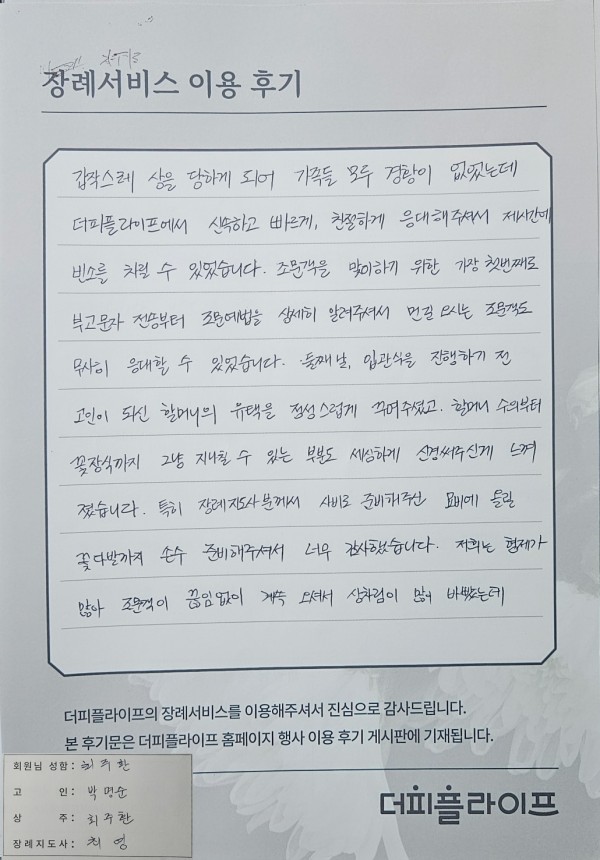 장례서비스 이용 후기
갑작스레 상을 당하게 되어 가족들 모두 경황이 없었는데
더피플라이프에서 신속하고 빠르게, 친절하게 응대해주셔서 제시간에
빈소를 차릴 수 있었습니다. 조문객을 맞이하기 위한 가장 첫번째로
부고문자 전송부터 조문예법을 상세히 알려주셔서 먼길 오시는 조문객도
무사히 응대할 수 있었습니다. 둘째날, 입관식을 진행하기 전
고인이 되신 할머니의 유택을 정성스럽게 꾸며주셨고. 할머니 수의부터
꽃장식까지 그냥 지나칠 수 있는 부분도 세심하게 신경써주신게 느껴
졌습니다. 특히 장례지도사분께서 사비로 준비해주신 묘비에 올릴
꽃다발까지 손수 준비해주셔서 너무 감사했습니다. 저희는 형제가
많아 조문객이 끊임없이 계속 오셔서 상차림이 많이 바빴는데
더피플라이프의 장례서비스를 이용해주셔서 진심으로 감사드립니다.
본 후기문은 더피플라이프 홈페이지 행사 이용 후기 게시판에 기재됩니다.
회원님 성함 : 최주환
고 인 : 박명순
상 주 : 최주환
장례지도사 : 최영
더피플라이프